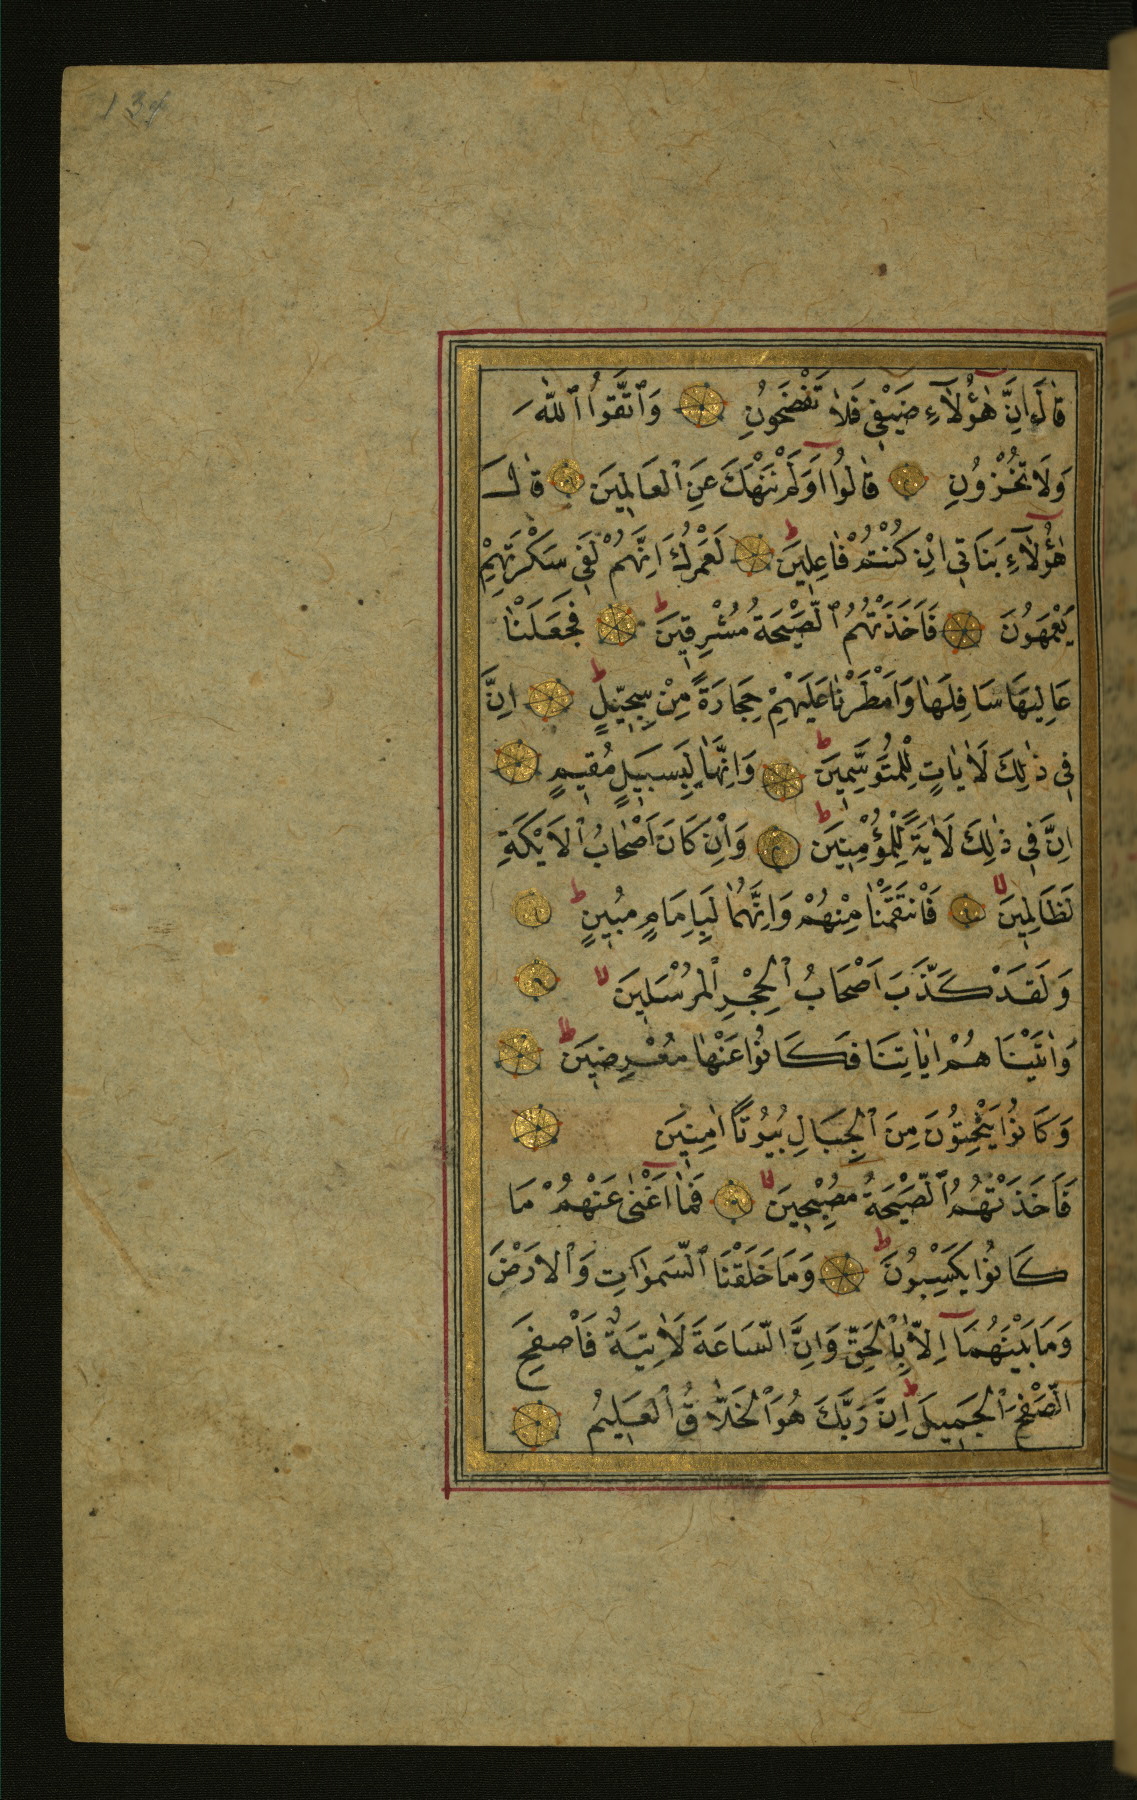 134
قَالَ اِنَّ هٰؤُلَاۤءِ ضَيْفِي فَلَا تَفْضَحُونِ وَاتَّقُوا اللّٰهَ
وَلَا تُخْزُونِ قَالُوا اَوَلَمْ نَنْهَكَ عَنِ الْعَالَمِينَ قَالَ
هٰؤُلَاۤءِ بَنَاتِي اِنْ كُنْتُمْ فَاعِلِينَ لَعَمْرُكَ اِنَّهُمْ لَفِي سَكْرَتِهِمْ
يَعْمَهُونَ فَاَخَذَتْهُمُ الصَّيْحَةُ مُشْرِقِينَ فَجَعَلْنَا
عَالِيَهَا سَافِلَهَا وَاَمْطَرْنَا عَلَيْهِمْ حِجَارَةً مِنْ سِجِّيلٍ اِنَّ
فِي ذٰلِكَ لَاٰيَاتٍ لِلْمُتَوَسِّمِينَ وَاِنَّهَا لَبِسَبِيلٍ مُقِيمٍ
اِنَّ فِي ذٰلِكَ لَاٰيَةً لِلْمُؤْمِنِينَ وَاِنْ كَانَ اَصْحَابُ الْاَيْكَةِ
لَظَالِمِينَ فَانْتَقَمْنَا مِنْهُمْ وَاِنَّهُمَا لَبِاِمَامٍ مُبِينٍ
وَلَقَدْ كَذَّبَ اَصْحَابُ الْحِجْرِ الْمُرْسَلِينَ
وَاٰتَيْنَاهُمْ اٰيَاتِنَا فَكَانُوا عَنْهَا مُعْرِضِينَ
وَكَانُوا يَنْحِتُونَ مِنَ الْجِبَالِ بُيُوتًا اٰمِنِينَ
فَاَخَذَتْهُمُ الصَّيْحَةُ مُصْبِحِينَ فَمَا اَغْنٰى عَنْهُمْ مَا
كَانُوا يَكْسِبُونَ وَمَا خَلَقْنَا السَّمٰوَاتِ وَالْاَرْضَ
وَمَا بَيْنَهُمَا اِلَّا بِالْحَقِّ وَاِنَّ السَّاعَةَ لَاٰتِيَةٌ فَاصْفَحِ
الصَّفْحَ الْجَمِيلَ اِنَّ رَبَّكَ هُوَ الْخَلَّاقُ الْعَلِيمُ